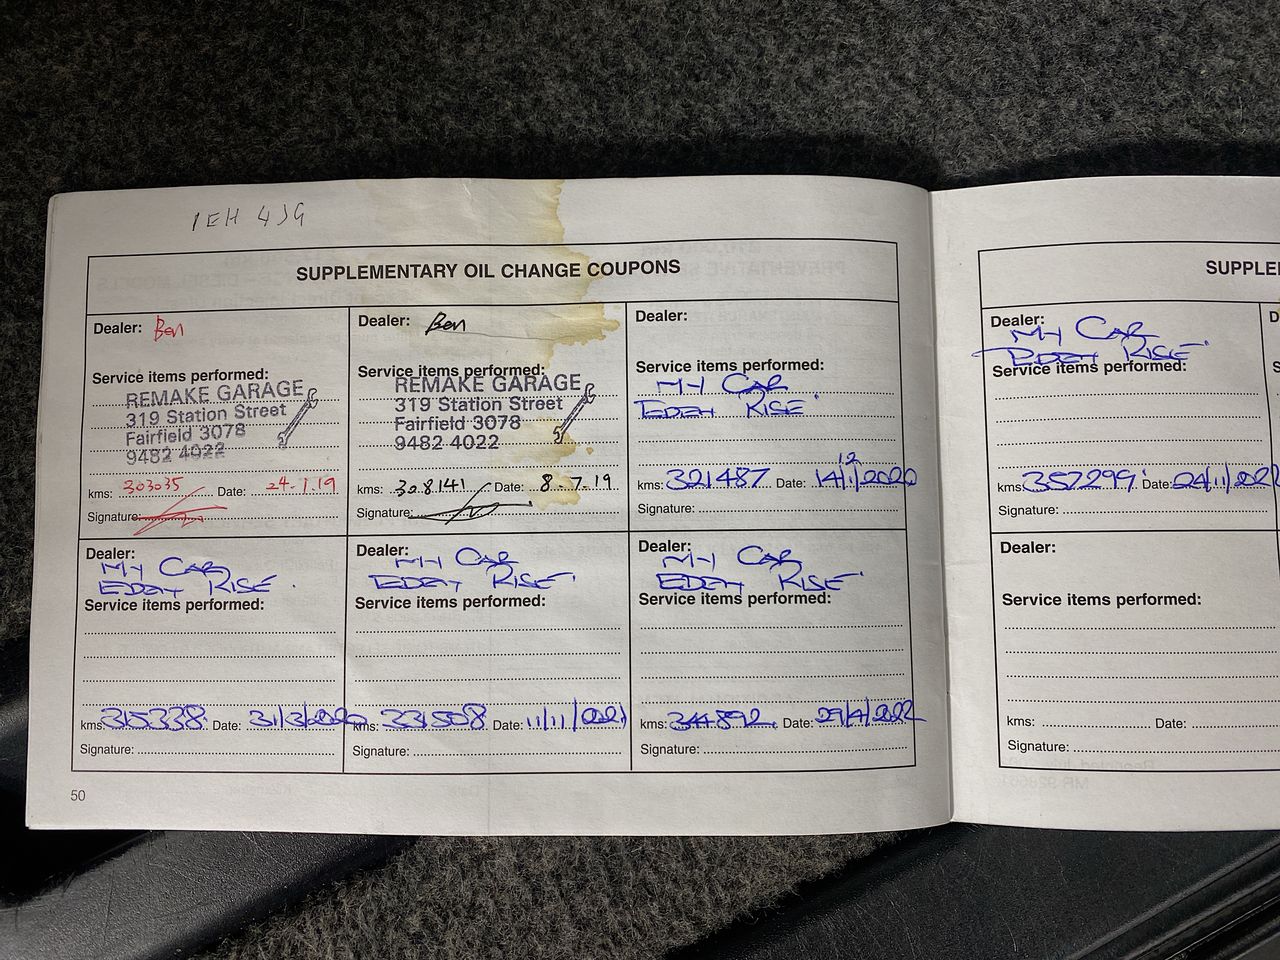 1EH 4JG
SUPPLEMENTARY OIL CHANGE COUPONS
Dealer: Ben
Service items performed:
REMAKE GARAGE
319 Station Street
Fairfield 3078
9482 4022
kms: 303035 Date: 24-1-19
Signature:
Dealer: Ben
Service items performed:
REMAKE GARAGE
319 Station Street
Fairfield 3078
9482 4022
kms: 308141 Date: 8-7-19
Signature:
Dealer:
Service items performed:
MY CAR
EDEN RISE
12
kms: 321487 Date: 14/1/2020
Signature:
Dealer: MY CAR
EDEN RISE
Service items performed:
kms: 315338 Date: 31/3/2020
Signature:
Dealer: MY CAR
EDEN RISE
Service items performed:
kms: 331508 Date: 11/11/2021
Signature:
Dealer: MY CAR
EDEN RISE
Service items performed:
kms: 344892 Date:
Signature:
50
SUPPLE
Dealer: MY CAR
EDEN RISE
Service items performed:
kms: 357299 Date: 24/11/202
Signature:
Dealer:
Service items performed:
kms: Date:
Signature: